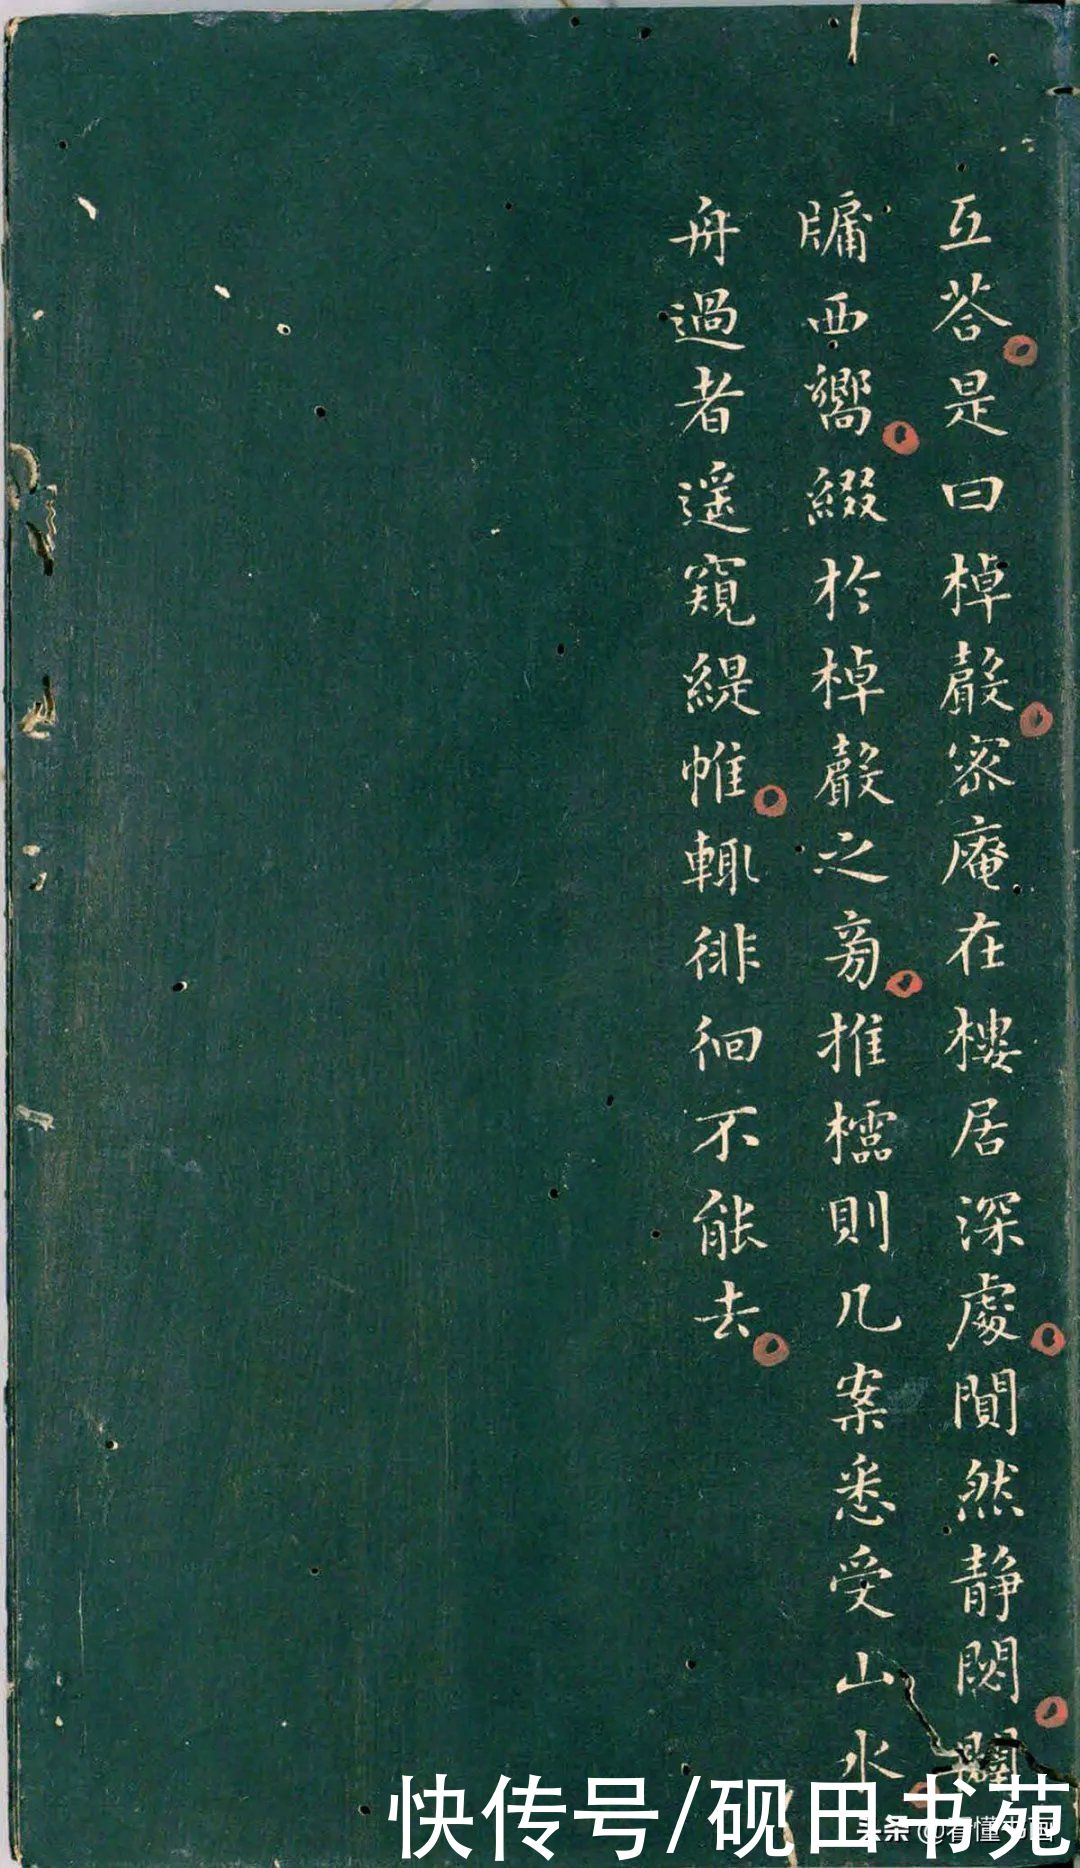 互荅是曰棹聲密庵在樓居深處閴然静閟闢
牖西嚮綴於棹聲之旁推櫺則几案悉受山水
舟過者遥窺緹帷輒徘徊不能去
快传号/砚田书苑
头条 @看懂书画